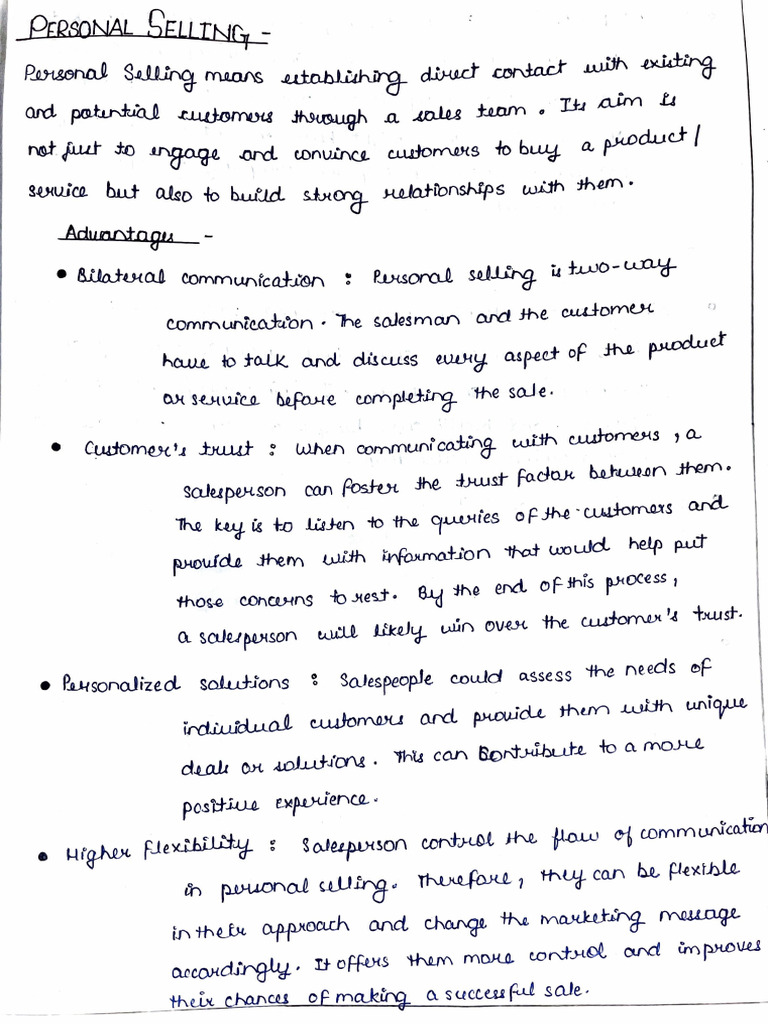 PERSONAL SELLING -
Personal Selling means establishing direct contact with existing
and potential customers through a sales team. Its aim is
not just to engage and convince customers to buy a product/
service but also to build strong relationships with them.
Advantages -
• Bilateral communication : Personal selling is two-way
communication. The salesman and the customer
have to talk and discuss every aspect of the product
or service before completing the sale.
• Customer's trust : When communicating with customers, a
salesperson can foster the trust factor between them.
The key is to listen to the queries of the customers and
provide them with information that would help put
those concerns to rest. By the end of this process,
a salesperson will likely win over the customer's trust.
• Personalized solutions : Salespeople could assess the needs of
individual customers and provide them with unique
deals or solutions. This can contribute to a more
positive experience.
• Higher flexibility : Salesperson control the flow of communication
in personal selling. Therefore, they can be flexible
in their approach and change the marketing message
accordingly. It offers them more control and improves
their chances of making a successful sale.